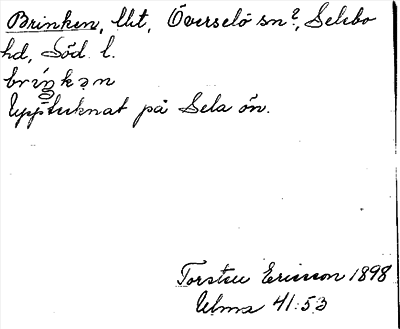 Brinken, lht, Överselö sn?, Selebo
hd, Söd. l.
briŋkən
Upptecknat på Sela ön.
Torsten Ericsson 1898
Ulma 41:53